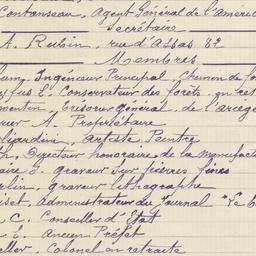 Contanseau, Agent Général de l'Améri
Secrétaire
A. Rubin, rue d'Assas 82
Membres
Ingénieur Principal Chemin de fe
fus E. Conservateur des forêts en ret
mentin, Trésorier général, de l'ariège
rier A. Propriétaire
jardin, artiste Peintre
h, Directeur honoraire de la Manufact
aire L. graveur sur pierres fines
rlin, graveur lithographe
iset, Administrateur du Journal "Le
C. Conseiller d'Etat
E. Ancien Préfet
ller, Colonel en retraite